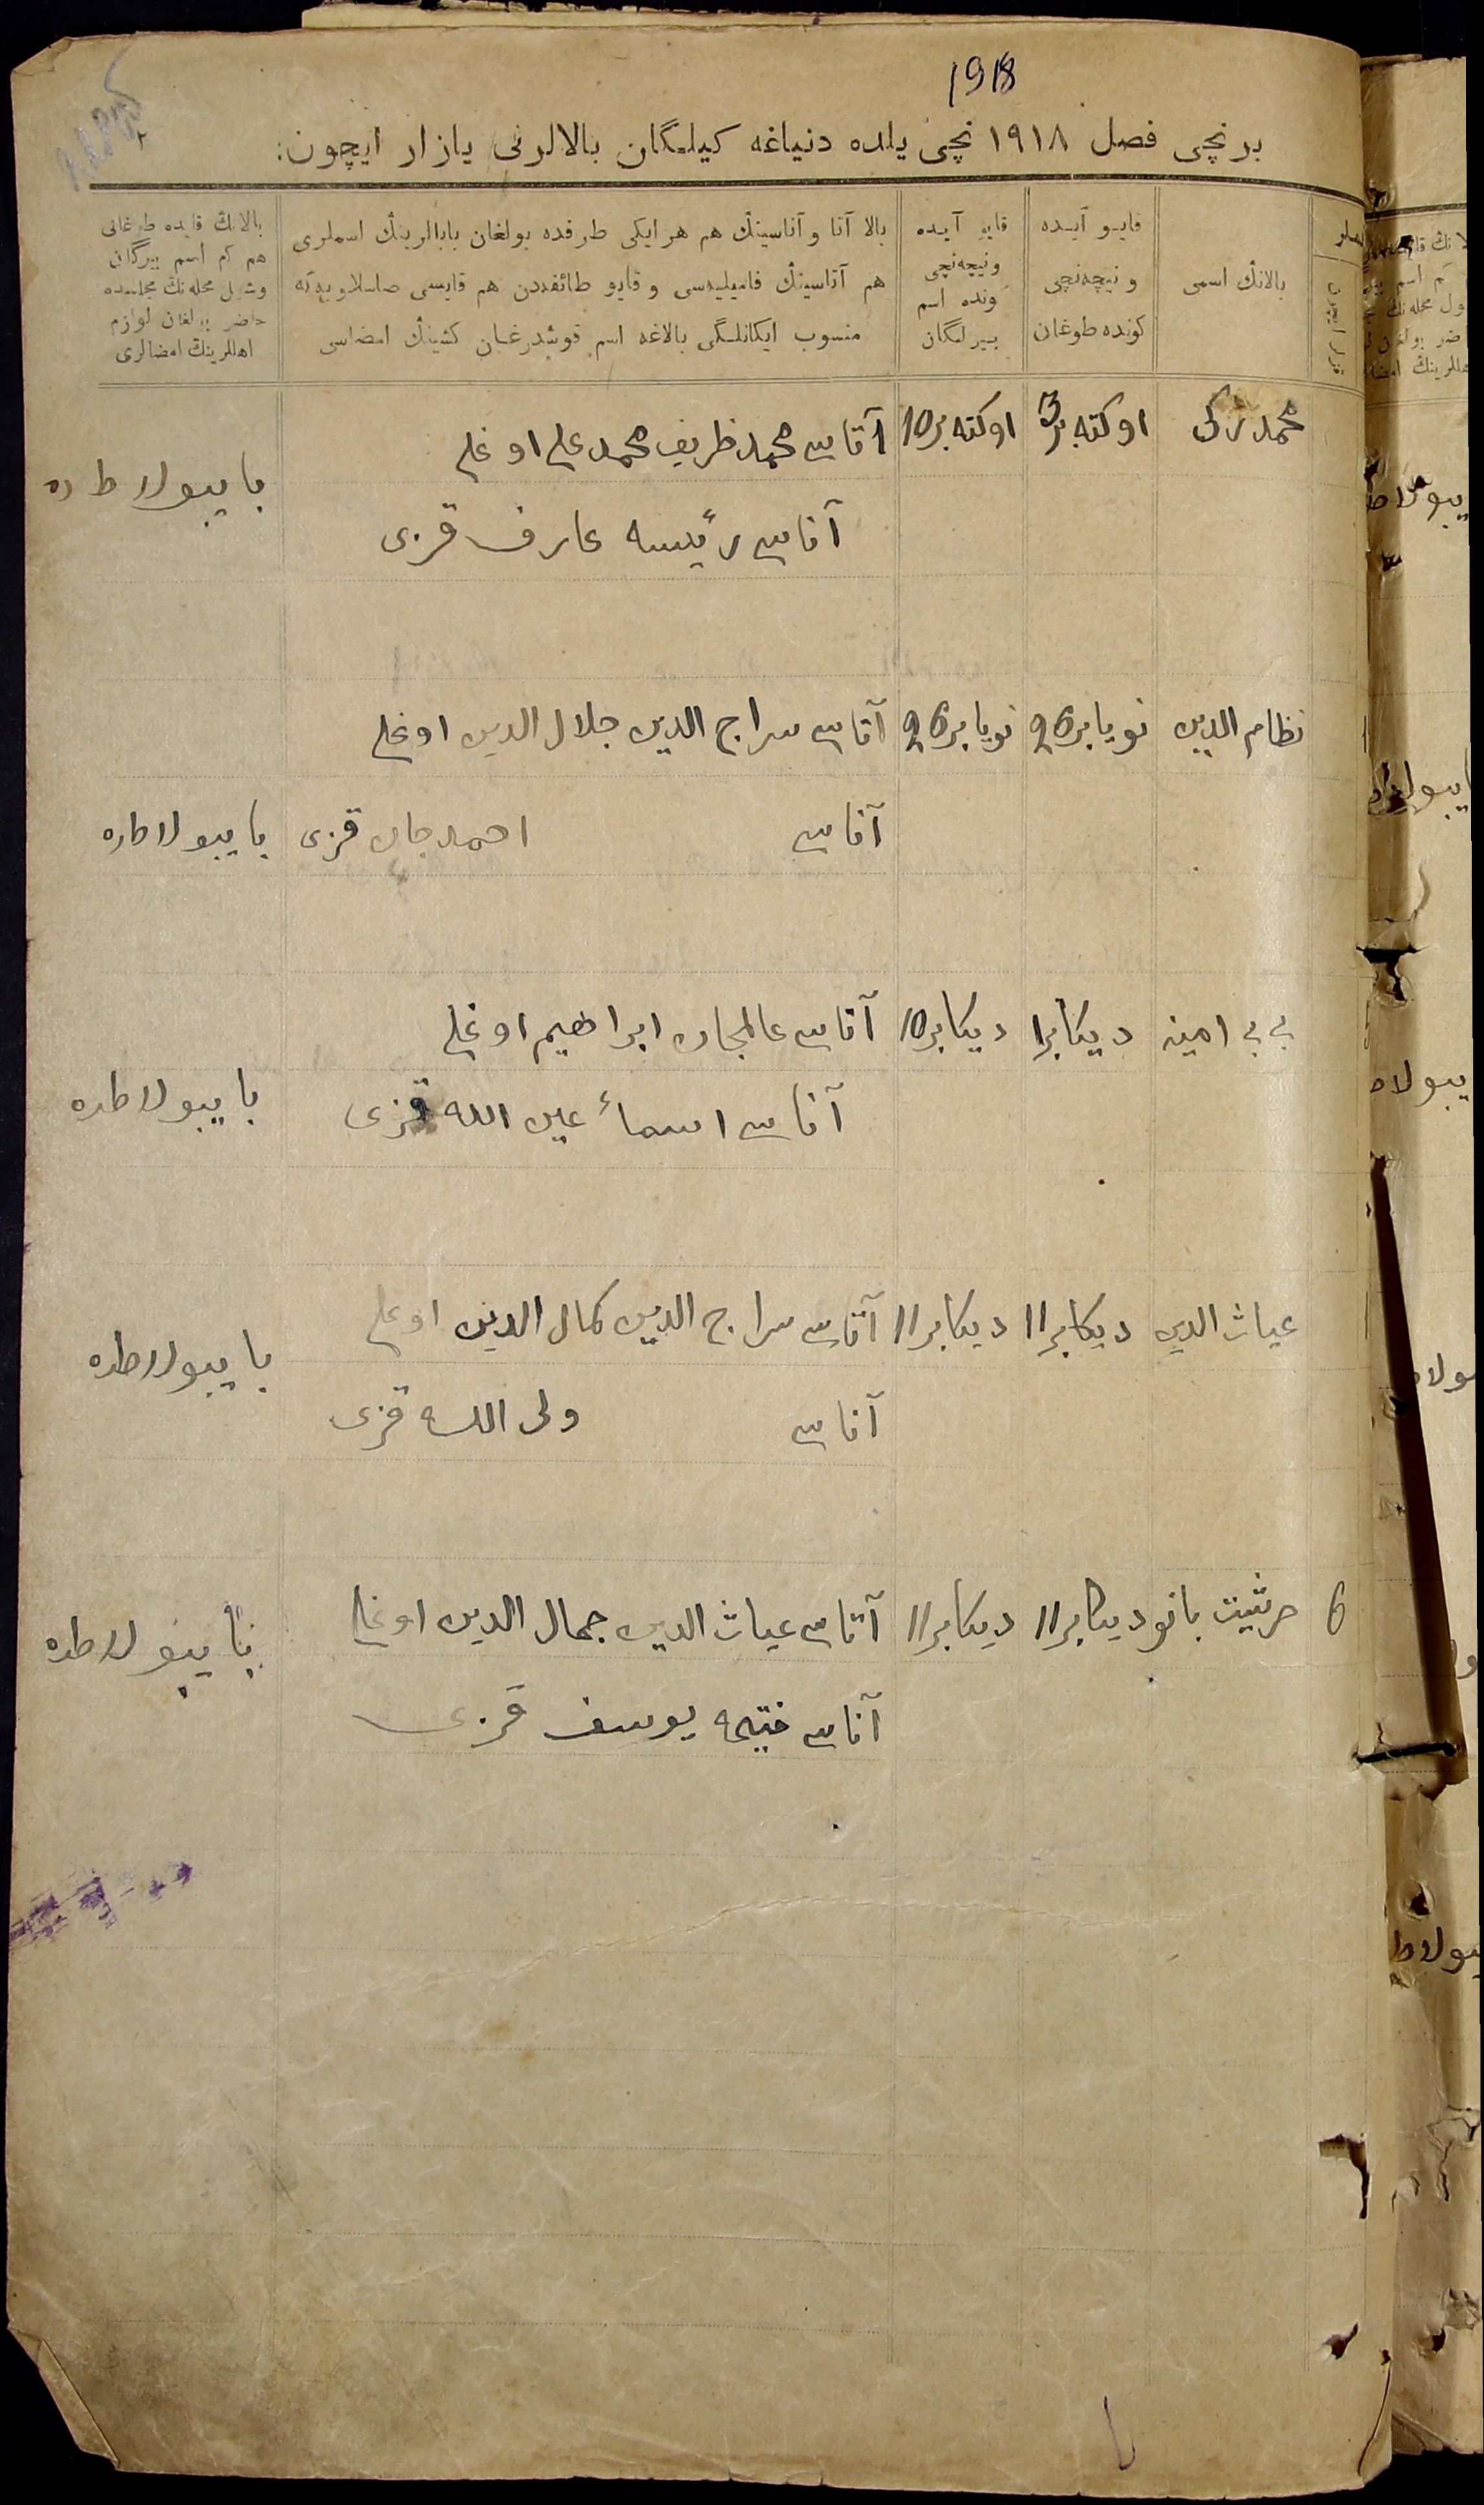 1918
برنچی فصل ١٩١٨ نچی یلده دنیاغه کیلگان بالالرنی یازار ایچون:
بالانڭ اسمی
قایو آیده
و نیچه‌نچی
کونده طوغان
قایو آیده
و نیچه‌نچی
کونده اسم
بیرلگان
بالا آتا و آناسینڭ هم هر ایکی طرفده بولغان بابالرینڭ اسملری
هم آتاسینڭ فامیلیه‌سی و قایو طائفه‌دن هم قایسی
منسوب ایکانلگی بالاغه اسم قوشدرغان کشینڭ امضاسی
بالانڭ قایده طوغانی
هم کم اسم بیرگان
محله‌نڭ مجلسده
حاضر بولغان لوازم
اهللرینڭ امضالری
محمد زکی
اوکته‌بر 3
اوکته‌بر 10
آتاسی محمد ظریف محمد علی اوغلی
بایبولاطده
آناسی رئیسه عارف قزی
نظام الدین
نویابر 26
نویابر 26
آتاسی سراج الدین جلال الدین اوغلی
آناسی احمدجان قزی
بایبولاطده
بی بی امینه
دیکابر 1
دیکابر 10
آتاسی عالمجان ابراهیم اوغلی
آناسی اسماء عین الله قزی
بایبولاطده
غیاث الدین
دیکابر 11
دیکابر 11
آتاسی سراج الدین کمال الدین اوغلی
بایبولاطده
آناسی ولی الله قزی
6
بانو
دیکابر 11
دیکابر 11
آتاسی غیاث الدین جمال الدین اوغلی
بایبولاطده
آناسی یوسف قزی